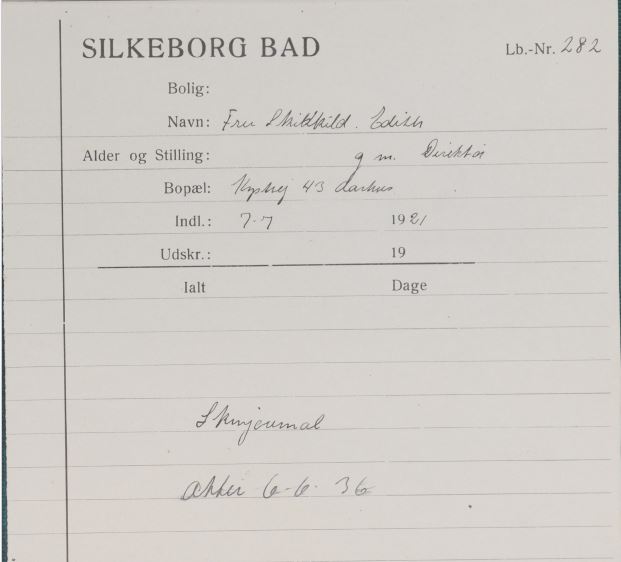 SILKEBORG BAD Lb.-Nr. 282
Bolig:
Navn: Fru Skibkild. Edith
Alder og Stilling: g m. Direktör
Bopæl: Kystvej 43 Aarhus
Indl.: 7-7 1921
Udskr.: 19
Ialt Dage
Skinjournal
Akter 6-6. 36